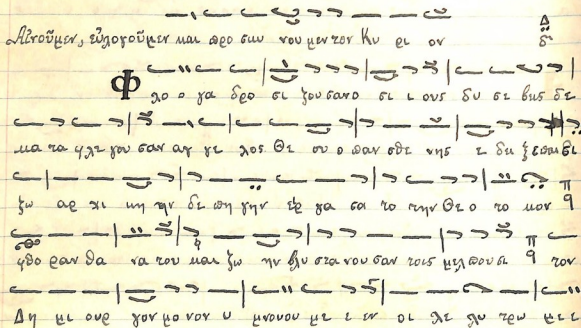 Αἰνοῦμεν, εὐλογοῦμεν και προ σκυ νου μεν τον Κυ ρι ον
Φ λο ο γα δρο σι ζου σανο σι ι ους δυ σε βεις δε
μα τα φλε γου σαν αγ γε λος Θε ου ο παν σθε νης ε δει ξε παι δι
ζω αρ χι κη ην δε πη γην ερ γα σα το την Θε ο το κον
φθο ραν θα να του και ζω ην βλυ στα νου σαν τοις μελπουσι τον
Δη μι ουρ γον μο νον υ μνουου με ε εν οι λε λυ τρω με ε